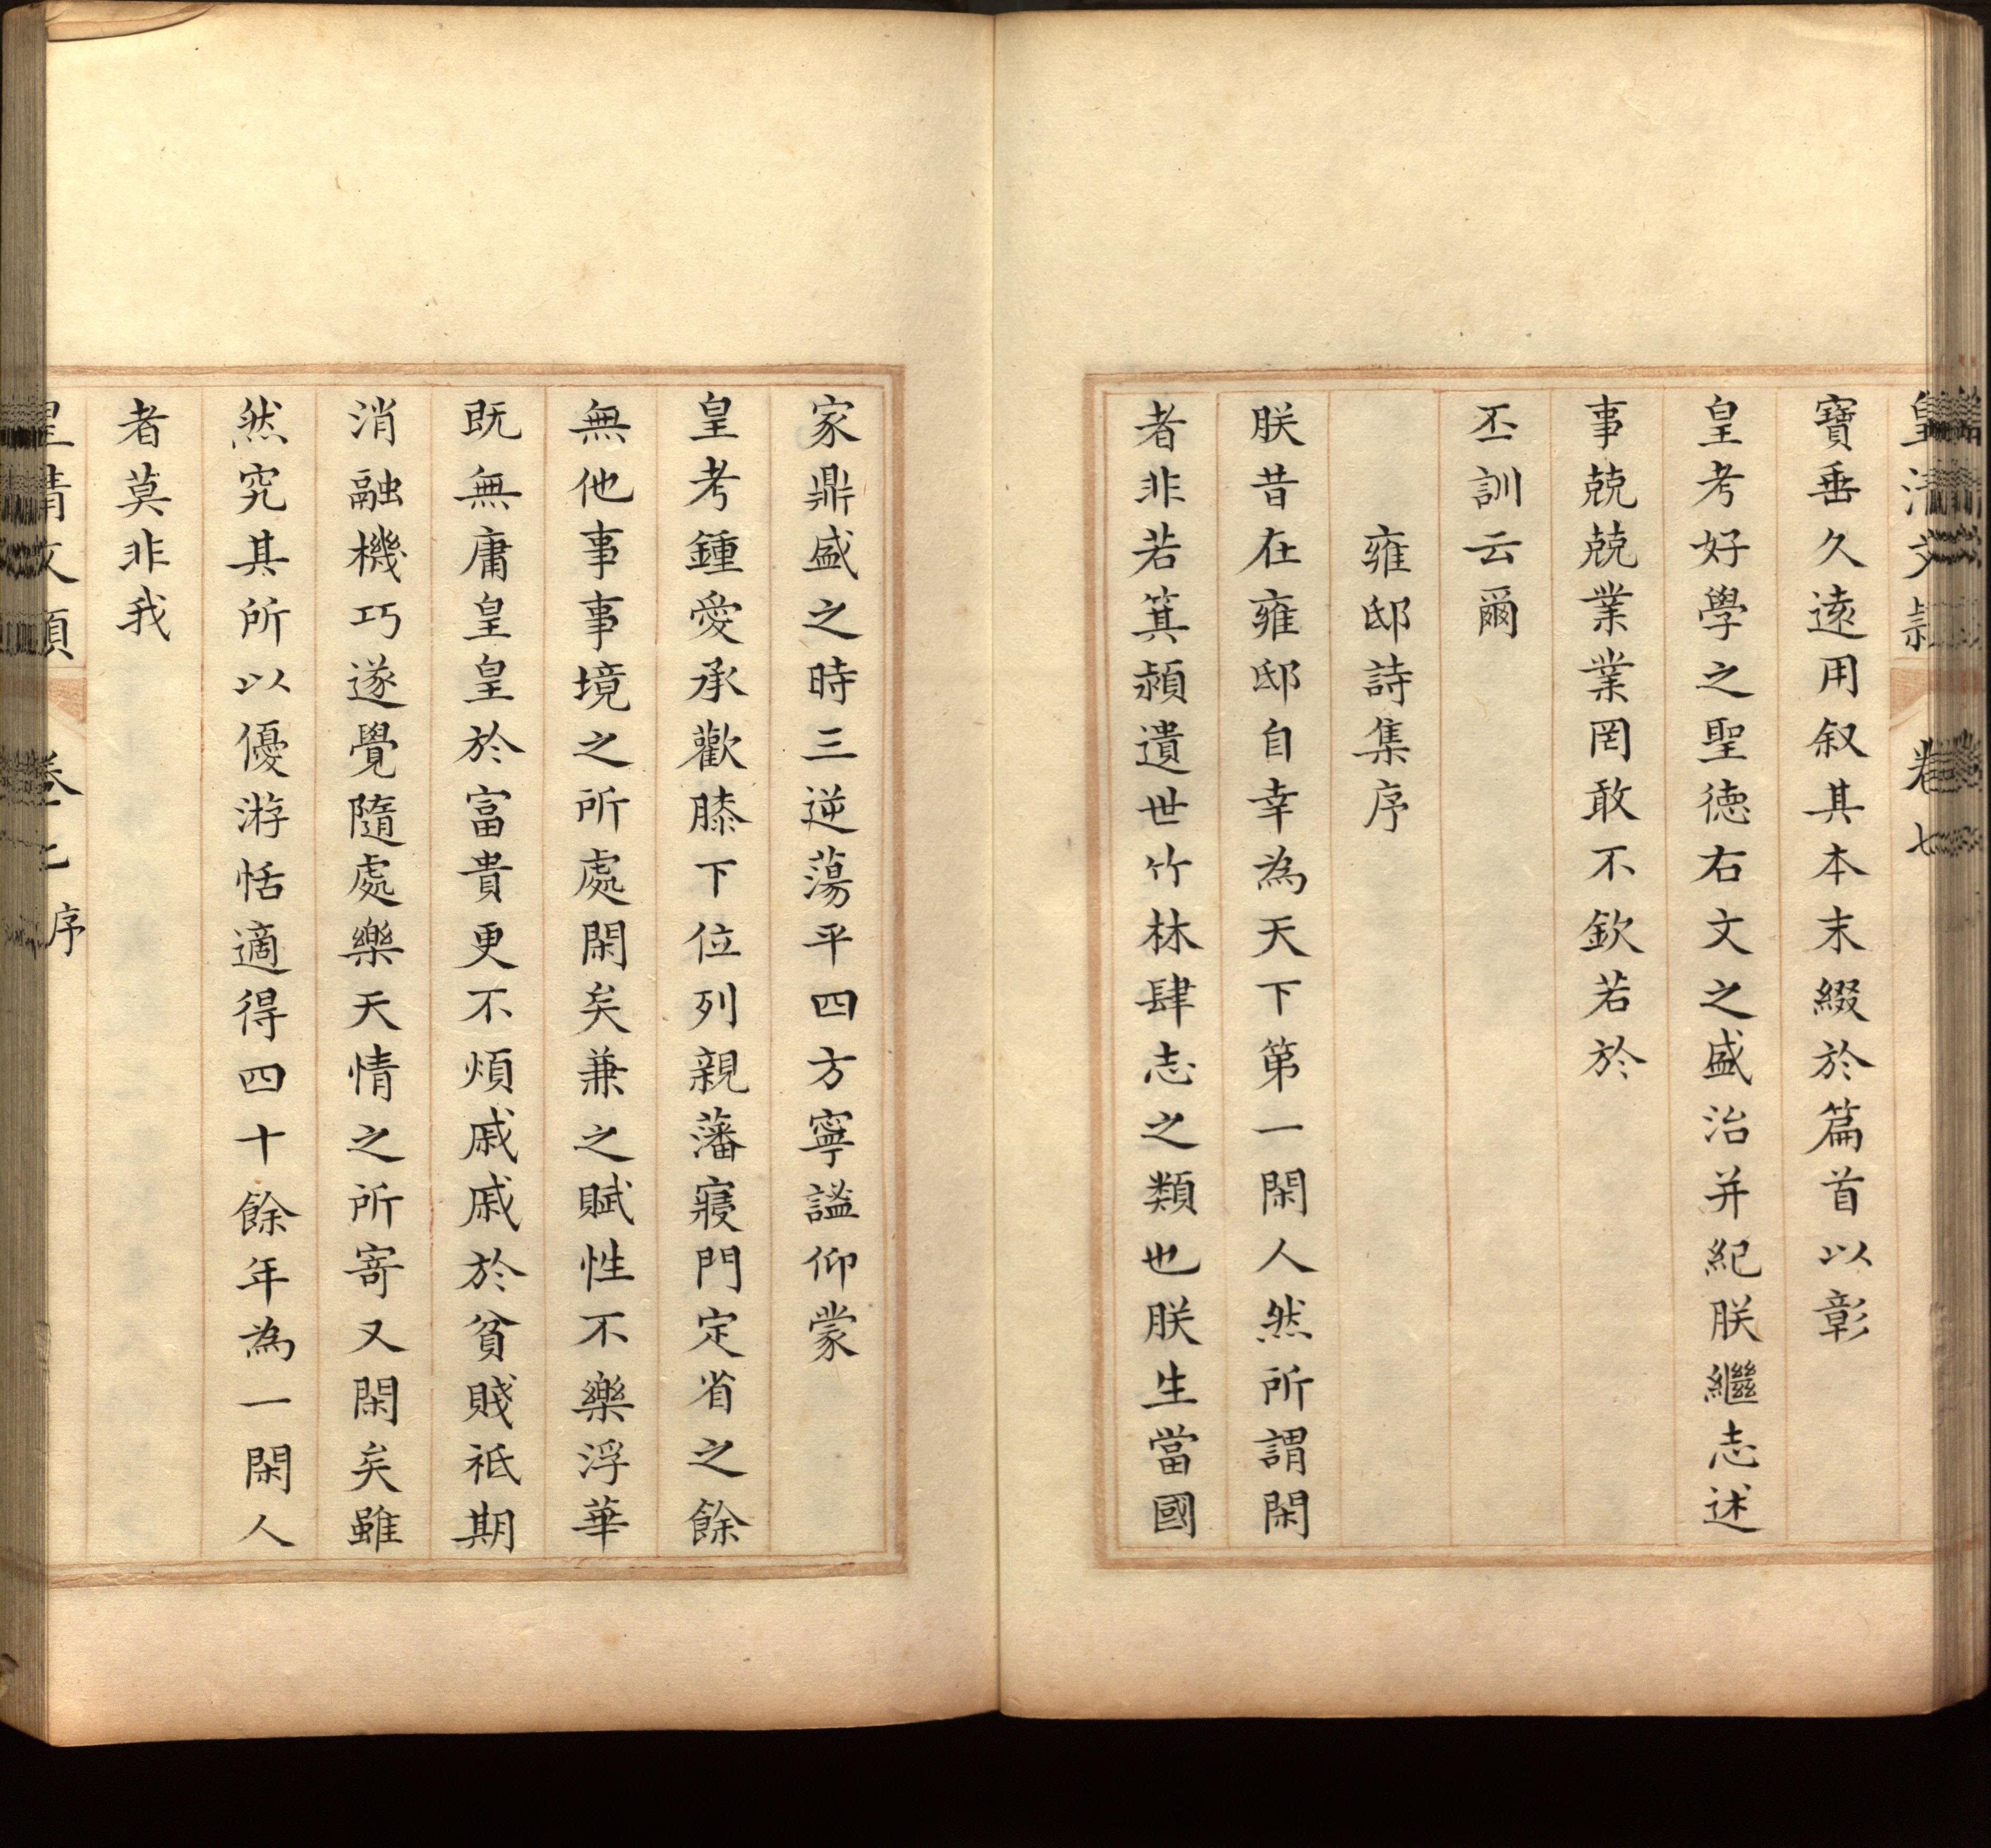 皇清文穎 卷七
寶垂久遠用叙其本末綴於篇首以彰
皇考好學之聖德右文之盛治并紀朕繼志述
事兢兢業業罔敢不欽若於
丕訓云爾
雍邸詩集序
朕昔在雍邸自幸為天下第一閑人然所謂閑
者非若箕潁遺世竹林肆志之類也朕生當國
家鼎盛之時三逆蕩平四方寧謐仰蒙
皇考鍾愛承歡膝下位列親藩寢門定省之餘
無他事事境之所處閑矣兼之賦性不樂浮華
既無庸皇皇於富貴更不煩戚戚於貧賤祗期
消融機巧遂覺隨處樂天情之所寄又閑矣雖
然究其所以優游恬適得四十餘年為一閑人
者莫非我
皇清文穎 卷七 序